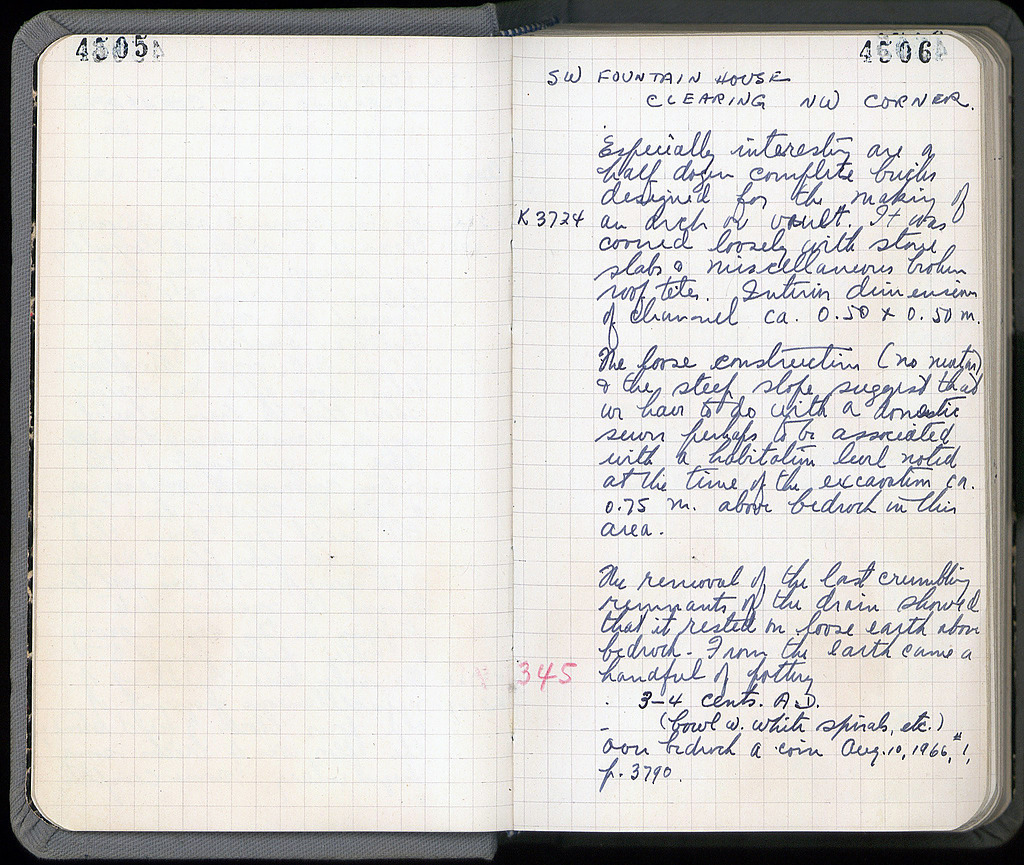 4505
4506
SW FOUNTAIN HOUSE
CLEARING NW CORNER.
Especially interesting are a
half dozen complete bricks
designed for the making of
K 3724 an arch or vault. It was
covered loosely with stone
slabs & miscellaneous broken
roof tiles. Interior dimensions
of channel ca. 0.50 x 0.50 m.
The loose construction (no mortar)
& the steep slope suggest that
we have to do with a domestic
sewer perhaps to be associated
with a habitation level noted
at the time of the excavation ca.
0.75 m. above bedrock in this
area.
The removal of the last crumbling
remnants of the drain showed
that it rested on loose earth above
bedrock. From the earth came a
345 handful of pottery
3-4 cents. A.D.
(bowl w. white spirals, etc.)
bedrock a coin Aug. 10, 1966, #1,
p. 3790.